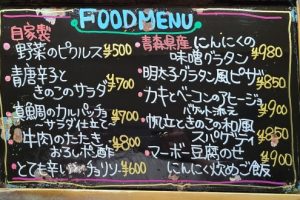 FOODMENU
自家製
野菜のピクルス ¥500
青唐辛子と
きのこのサラダ ¥700
真鯛のカルパッチョ
サラダ仕立て ¥700
牛肉のたたき
おろしポン酢 ¥800
とても辛いチョリソー ¥600
青森県産にんにくの
味噌グラタン ¥980
明太子グラタン風ピザ ¥850
カキとベーコンのアヒージョ
バケット添え ¥900
帆立ときのこの和風
スパゲティ ¥850
マーボー豆腐のせ ¥900
にんにく炒めご飯